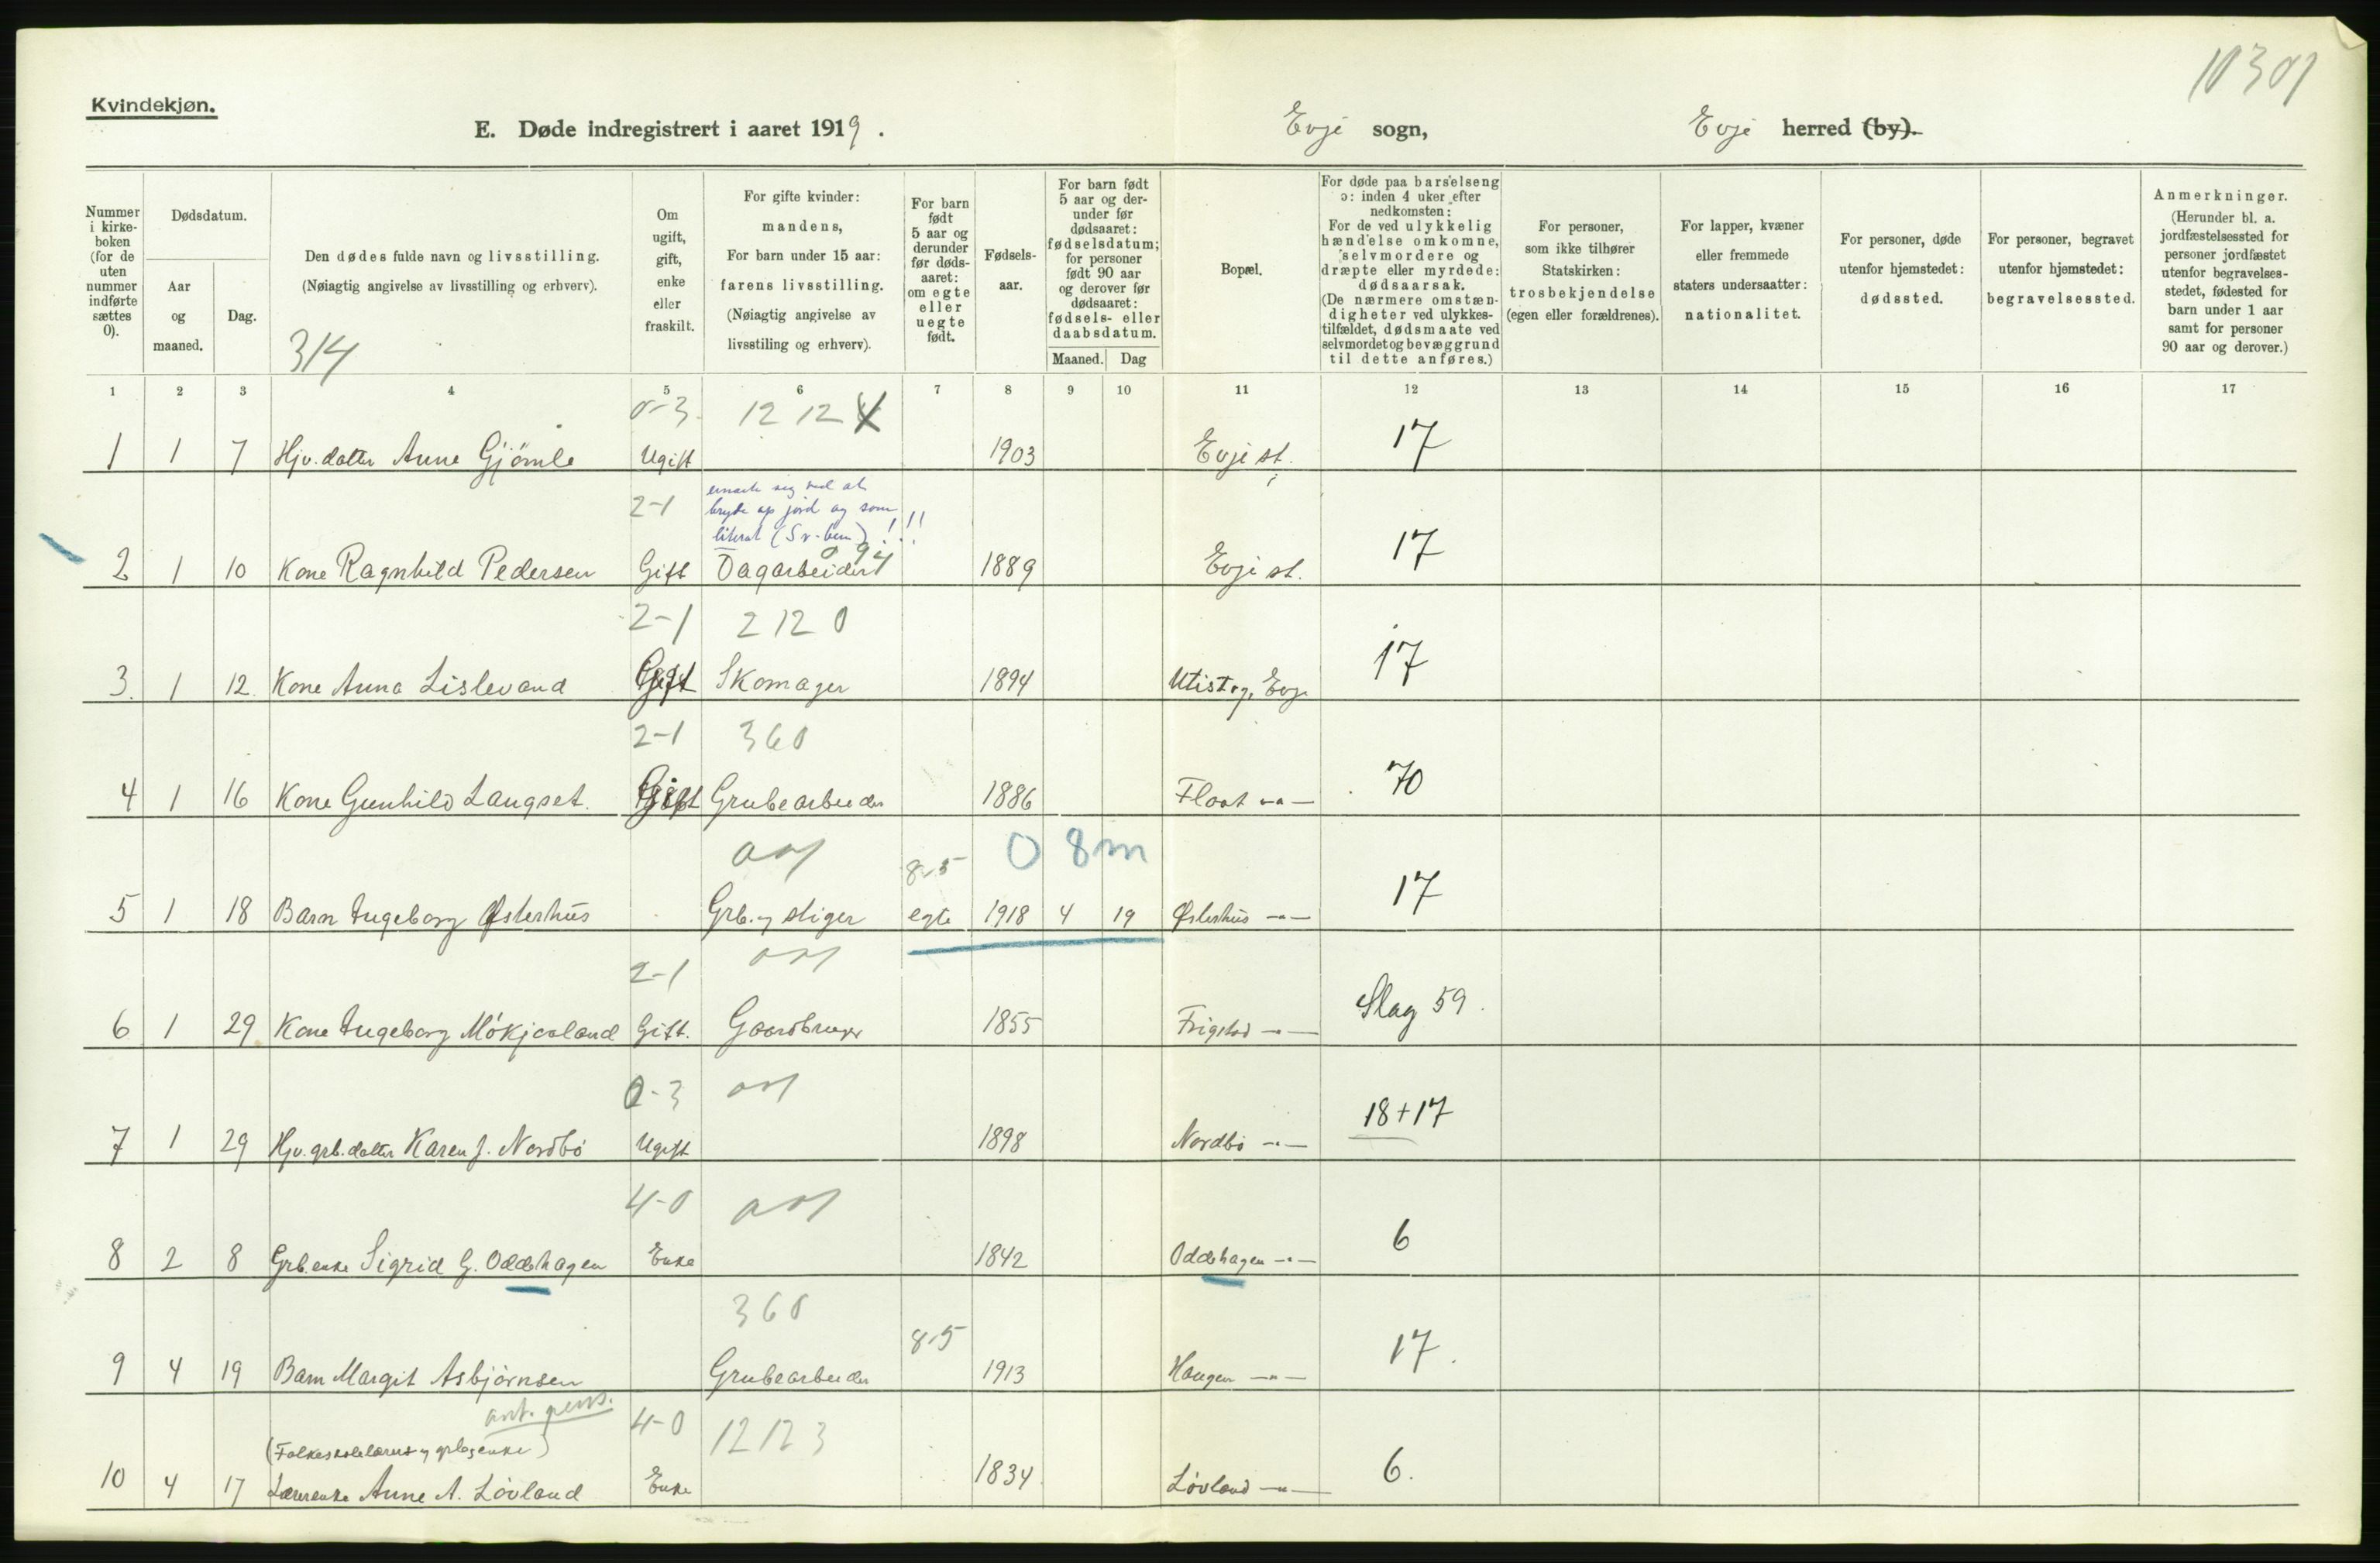 10301
Kvindekjøn.
E. Døde indregistrert i aaret 1919.
Evje sogn,
Evje herred (by).
Nummer i kirkeboken (for de uten nummer indførte sættes 0).
Dødsdatum.
Aar og maaned.
Dag.
Den dødes fulde navn og livsstilling.
(Nøiagtig angivelse av livsstilling og erhverv).
314
Om ugift, gift, enke eller fraskilt.
For gifte kvinder: mandens,
For barn under 15 aar: farens livsstilling.
(Nøiagtig angivelse av livsstiling og erhverv).
For barn født 5 aar og derunder før dødsaaret: om egte eller uegte født.
Fødselsaar.
For barn født 5 aar og derunder før dødsaaret: fødselsdatum; for personer født 90 aar og derover før dødsaaret: fødsels- eller daabsdatum.
Maaned. Dag
Bopæl.
For døde paa barselseng ɔ: inden 4 uker efter nedkomsten:
For de ved ulykkelig hændelse omkomne, selvmordere og dræpte eller myrdede: dødsaarsak.
(De nærmere omstændigheter ved ulykkestilfældet, dødsmaate ved selvmordet og bevæggrund til dette anføres.)
For personer, som ikke tilhører Statskirken: trosbekjendelse (egen eller forældrenes).
For lapper, kvæner eller fremmede staters undersaatter: nationalitet.
For personer, døde utenfor hjemstedet: dødssted.
For personer, begravet utenfor hjemstedet: begravelsessted.
Anmerkninger.
(Herunder bl. a. jordfæstelsessted for personer jordfæstet utenfor begravelsesstedet, fødested for barn under 1 aar samt for personer 90 aar og derover.)
1 2 3 4 5 6 7 8 9 10 11 12 13 14 15 16 17
0-3 12 12 X
1 1 7 Hjv. datter Anne Gjömle Ugift 1903 Evje st. 17
2-1 ernærte seg ved at
bryte op jord og som
literat (Sv-ben) !!!
0 94
2 1 10 Kone Ragnhild Pedersen Gift Dagarbeider 1889 Evje st. 17
2-1 2 12 0
3. 1 12. Kone Anna Lislevand Gift Skomager 1894 Evje 17
2-1 360
4 1 16 Kone Gunhild Langset. Gift Grubearbeider 1886 Flaat -"- 70
8-5 0 8m
5 1 18 Barn Ingeborg Østerhus Grb. og stiger egte 1918 4 19 Østerhus -"- 17
2-1
6 1 29 Kone Ingeborg Mókjaaland Gift. Gaardbruger 1855 Frigstad -"- Slag 59.
0-3
7 1 29 Hjv. grb. datter Karen J. Nordbó Ugift 1898 Nordbó -"- 18+17
4-0
8 2 8 Grb.enke Sigrid G. Oddehagen Enke 1842 Oddehagen -"- 6
360
8-5
9 4 19 Barn Margit Asbjórnsen Grubearbeider 1913 Haugen -"- 17.
ant. pens.
4-0 12 12 3
(Folkeskolelærer og grb.enke)
10 4 17 Lærerenke Anne A. Lóvland Enke 1834. Lóvland -"- 6.